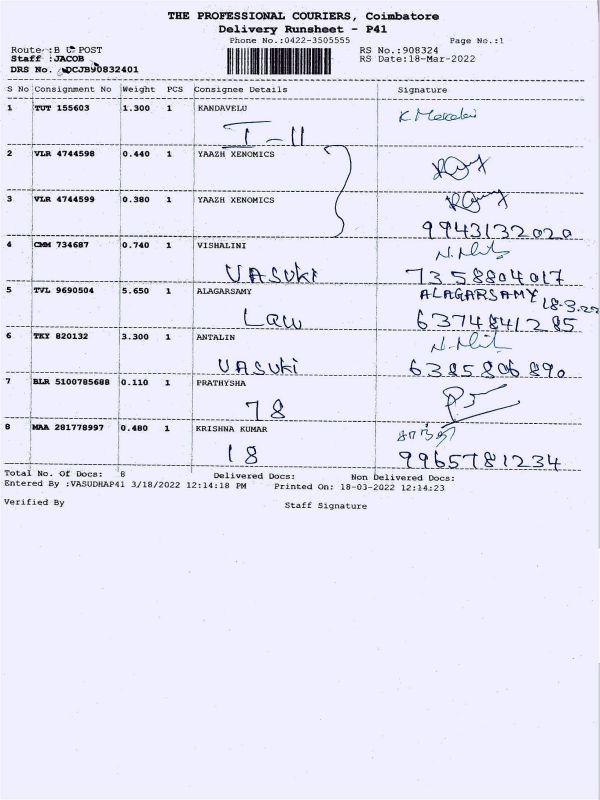 THE PROFESSIONAL COURIERS, Coimbatore
Delivery Runsheet - P41
Phone No.:0422-3505555 Page No.:1
Route :B U POST RS No.:908324
Staff :JACOB RS Date:18-Mar-2022
DRS No. DCJB90832401
S No Consignment No Weight PCS Consignee Details Signature
1 TUT 155603 1.300 1 KANDAVELU
I - II
2 VLR 4744598 0.440 1 YAAZH XENOMICS
3 VLR 4744599 0.380 1 YAAZH XENOMICS
9943132020
4 CMM 734687 0.740 1 VISHALINI
VASUKI 7358804017
5 TVL 9690504 5.650 1 ALAGARSAMY ALAGARSAMY 18-3-22
Law 6374841285
6 TKY 820132 3.300 1 ANTALIN
VASUKI 6385806890
7 BLR 5100785688 0.110 1 PRATHYSHA
78
8 MAA 281778997 0.480 1 KRISHNA KUMAR
18 9965781234
Total No. Of Docs: 8 Delivered Docs: Non Delivered Docs:
Entered By :VASUDHAP41 3/18/2022 12:14:18 PM Printed On: 18-03-2022 12:14:23
Verified By Staff Signature